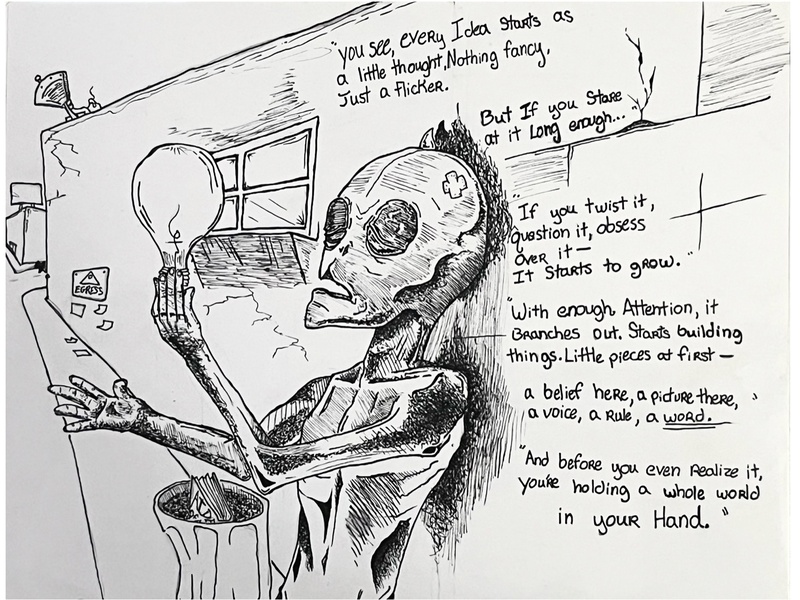 "you see, every Idea Starts as
a little thought, Nothing fancy,
Just a flicker.
But If you Stare
at it Long enough..."
"If you twist it,
question it, obsess
over it—
It Starts to grow."
"With enough Attention, it
Branches out. Starts building
things. Little pieces at first—
a belief here, a picture there,
a voice, a Rule, a word.
"And before you even Realize it,
you're holding a whole world
in your Hand."
EGRESS